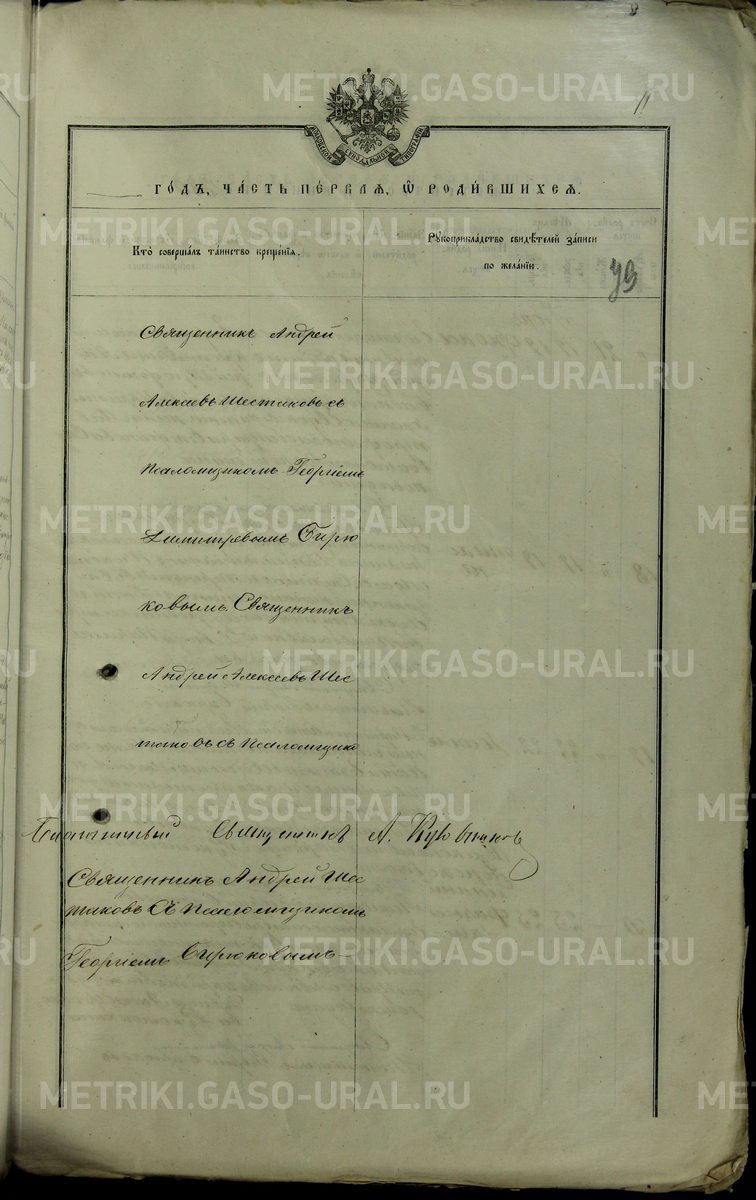 11
ГО́ДЪ, ЧА́СТЬ ПЕ́РВАѦ, Ѿ РОДИ́ВШИХСѦ.
Кто̀ соверша́лъ та́инство креще́нїѧ.
Рꙋкоприкла́дство свидѣ́телей за́писи
по жела́нїю.
Священникъ Андрей
Алексѣевъ Шестаковъ съ
псаломщикомъ Георгіемъ
Димитревымъ Бирю
ковымъ. Священникъ
Андрей Алексѣевъ Шес
таковъ съ псаломщико
Благочинный Священникъ А.
Священникъ Андрей Шес
таковъ съ псаломщикомъ
Георгіемъ Бирюковымъ
METRIKI.GASO-URAL.RU